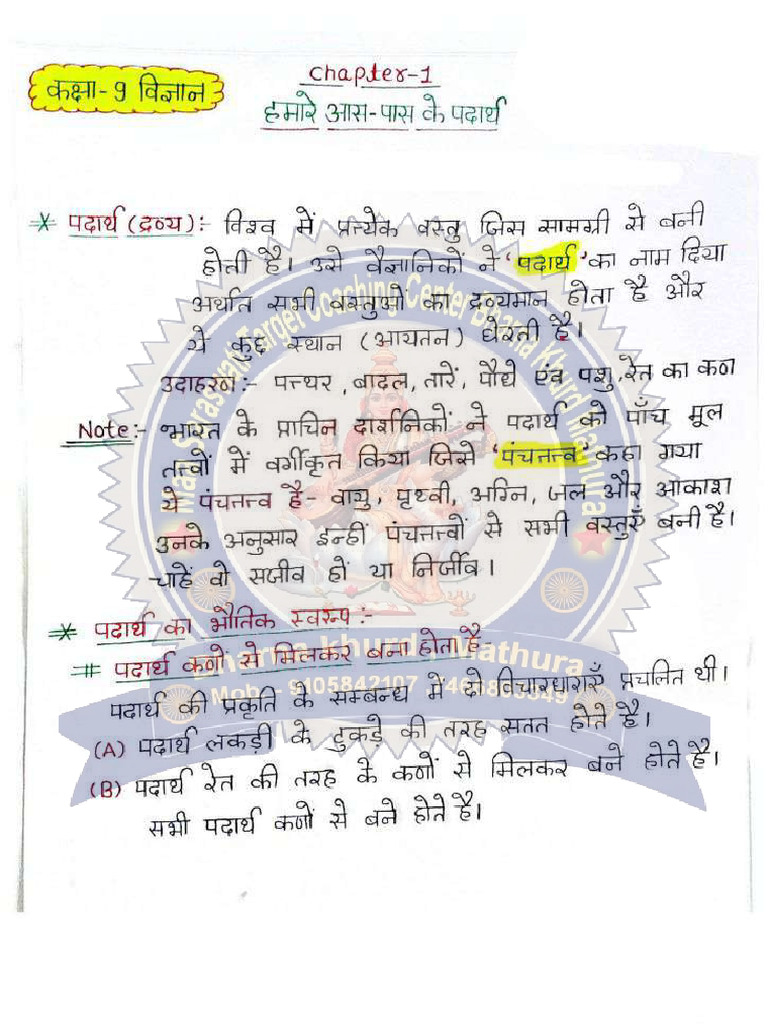 कक्षा-9 विज्ञान
Chapter-1
हमारे आस-पास के पदार्थ
* पदार्थ (द्रव्य):- विश्व में प्रत्येक वस्तु जिस सामग्री से बनी
होती है। उसे वैज्ञानिकों ने 'पदार्थ' का नाम दिया
अर्थात सभी वस्तुओं का द्रव्यमान होता है और
ये कुछ स्थान (आयतन) घेरती है।
उदाहरण:- पत्थर, बादल, तारें, पौधे एंव पशु, रेत का कण
Note:- भारत के प्राचिन दार्शनिकों ने पदार्थ को पाँच मूल
तत्त्वों में वर्गीकृत किया जिसे 'पंचतत्त्व' कहा गया
ये पंचतत्त्व है- वायु, पृथ्वी, अग्नि, जल और आकाश
उनके अनुसार इन्हीं पंचतत्त्वों से सभी वस्तुएँ बनी है।
चाहें वो सजीव हों या निर्जीव।
* पदार्थ का भौतिक स्वरूप:-
# पदार्थ कणों से मिलकर बना होता है
पदार्थ की प्रकृति के सम्बन्ध में दो विचारधाराएँ प्रचलित थी।
(A) पदार्थ लकड़ी के टुकड़े की तरह सतत होते है।
(B) पदार्थ रेत की तरह के कणों से मिलकर बने होते है।
सभी पदार्थ कणों से बने होते है।
Maa Saraswati Target Coaching Center Bharna Khurd Mathura
Bharna khurd, Mathura
Mob.- 9105842107